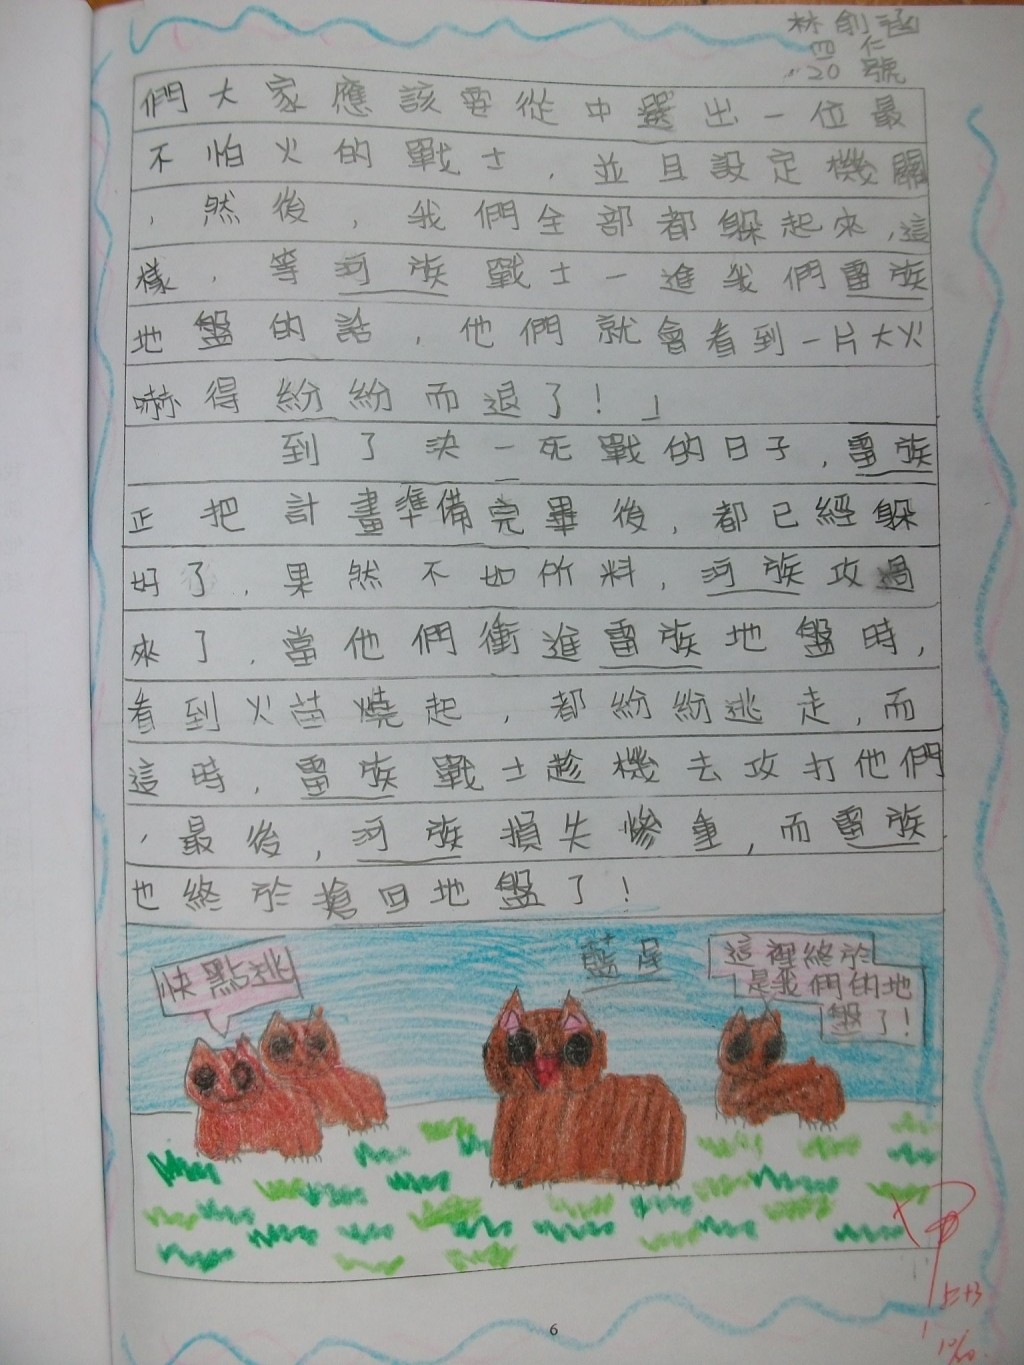 林創涵
四仁
20號
們大家應該要從中選出一位最
不怕火的戰士，並且設定機關
，然後，我們全部都躲起來，這
樣，等河族戰士一進我們雷族
地盤的話，他們就會看到一片大火
嚇得紛紛而退了！」
到了決一死戰的日子，雷族
正把計畫準備完畢後，都已經躲
好了，果然不如所料，河族攻過
來了，當他們衝進雷族地盤時，
看到火苗燒起，都紛紛逃走，而
這時，雷族戰士趁機去攻打他們
，最後，河族損失慘重，而雷族
也終於搶回地盤了！
快點逃
藍星
這裡終於
是我們的地
盤了！
6